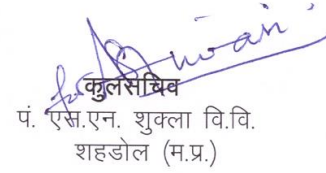 कुलसचिव
पं. एस.एन. शुक्ला वि.वि.
शहडोल (म.प्र.)